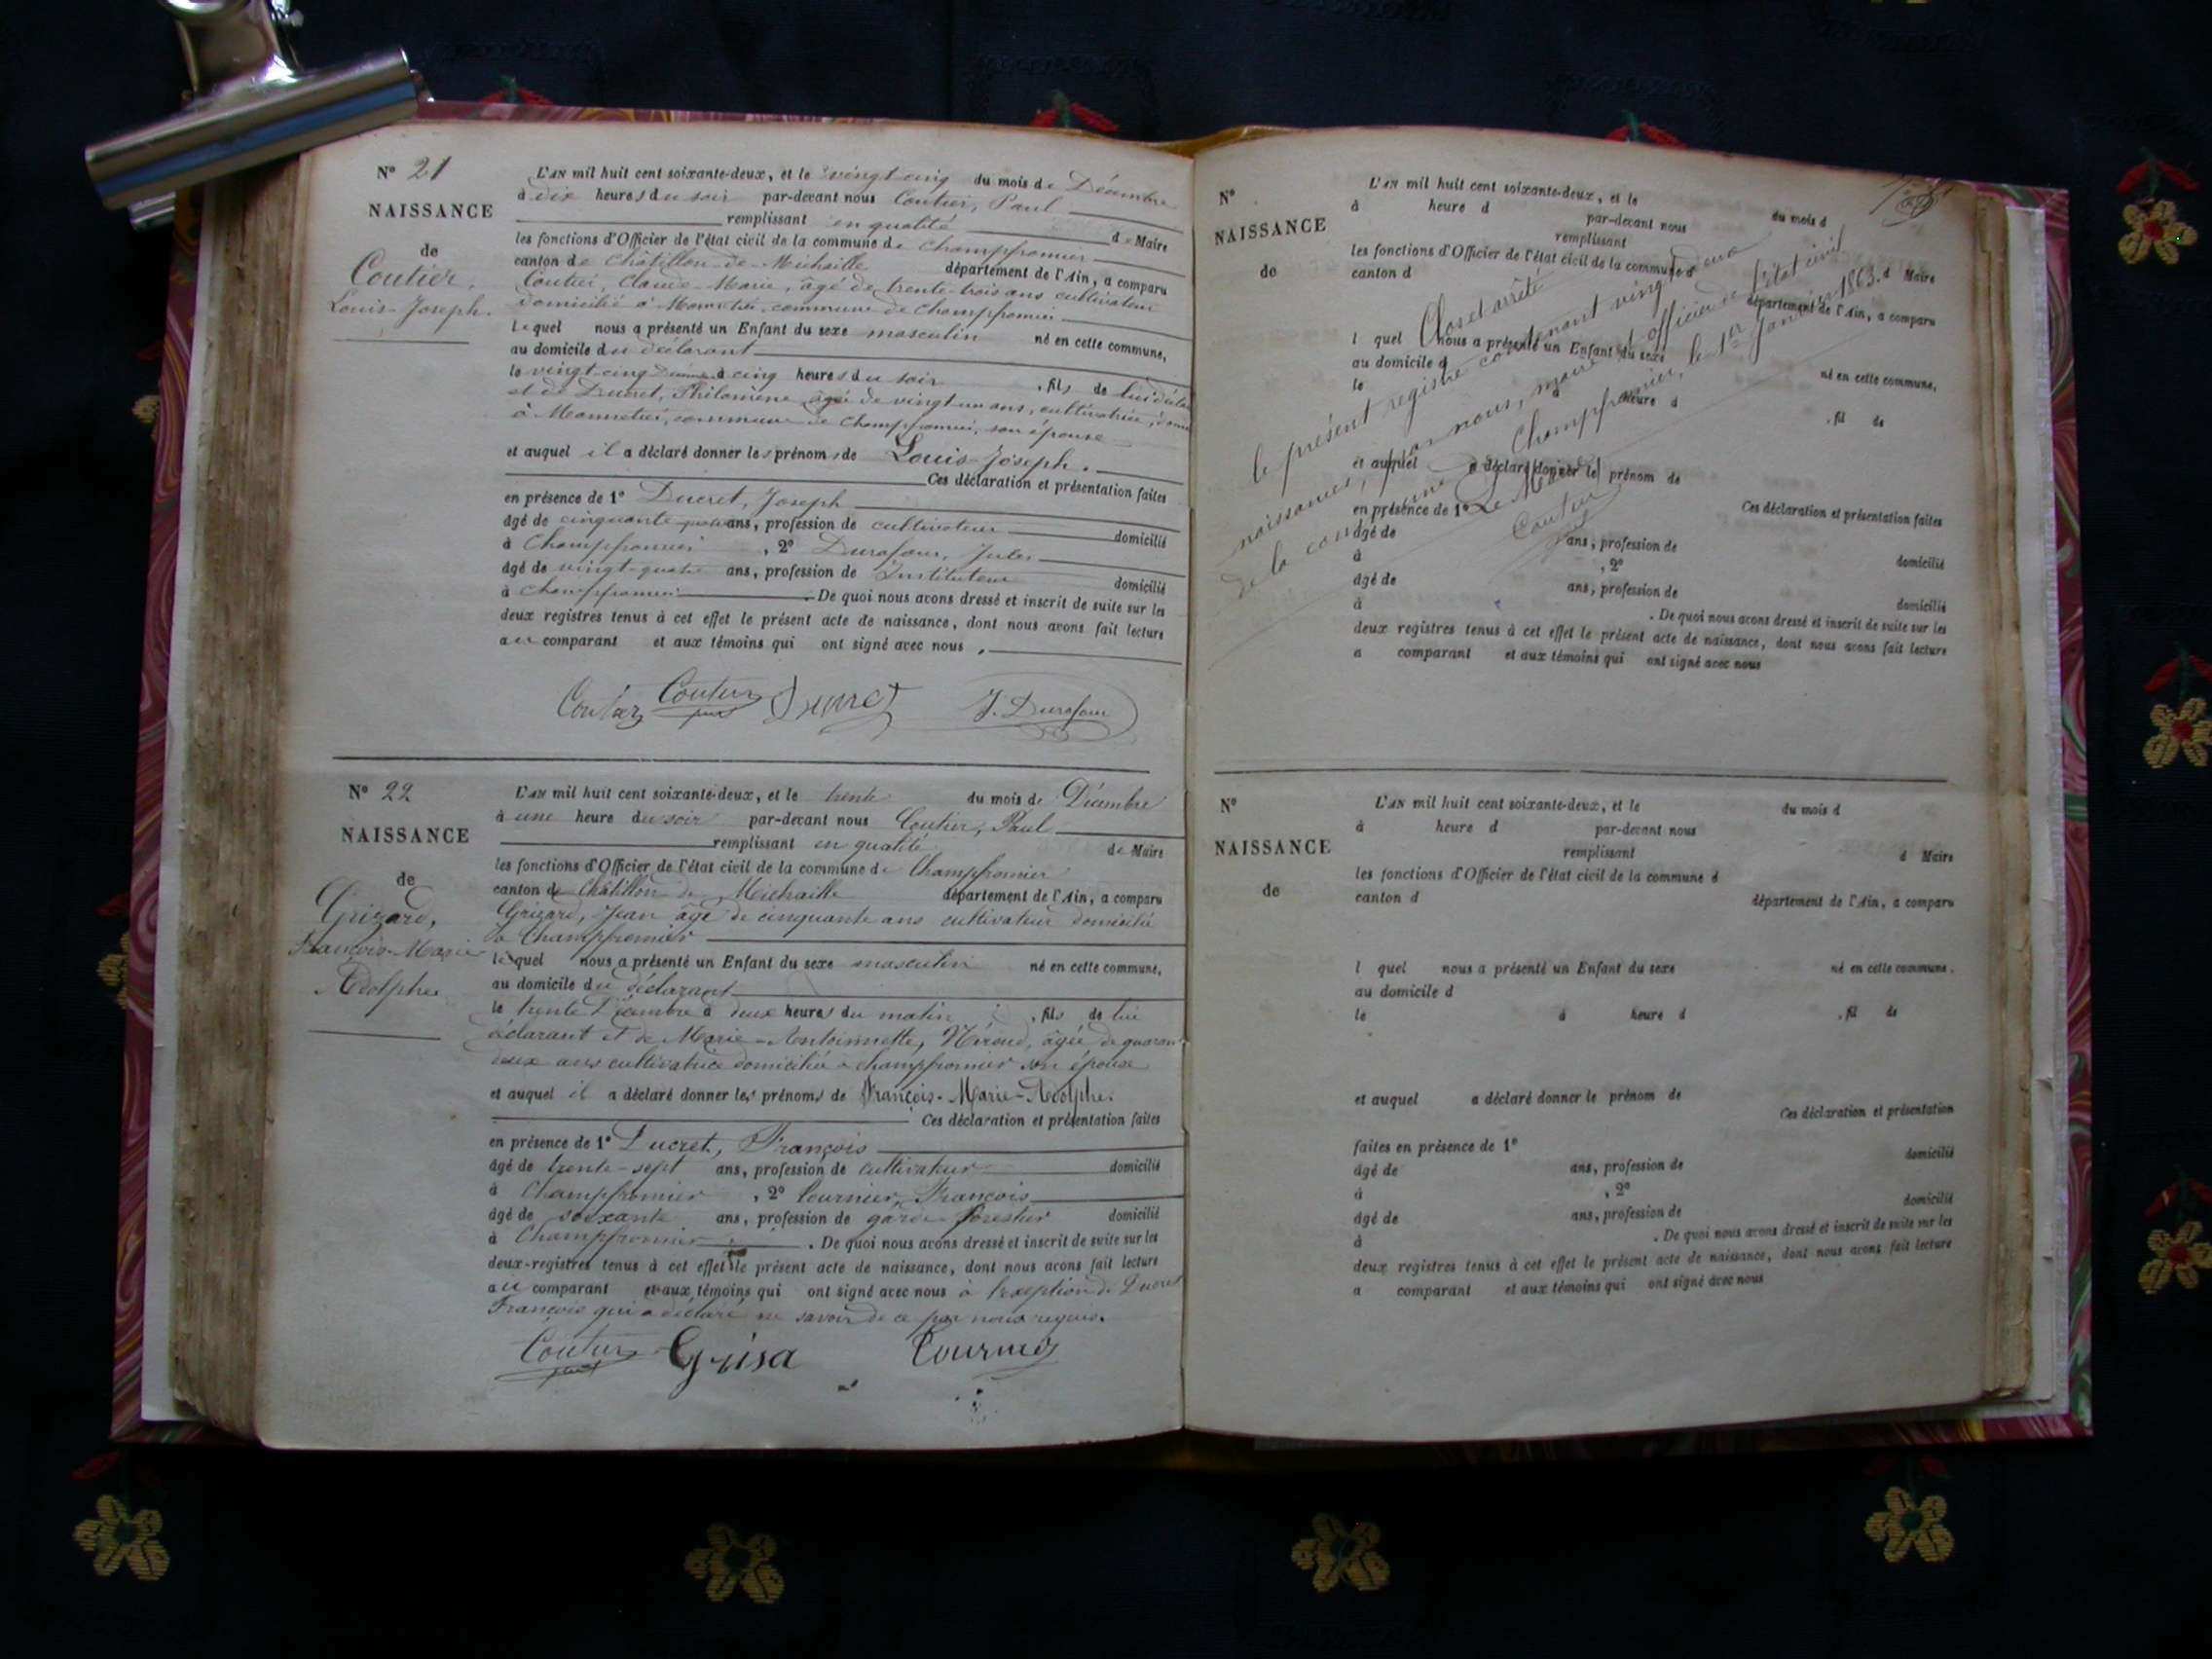 N° 21
NAISSANCE
de
Coutier,
Louis-Joseph.
L'AN mil huit cent soixante-deux, et le vingt cinq du mois de Décembre
à dix heures du soir par-devant nous Coutier, Paul
remplissant en qualité de Maire
les fonctions d'Officier de l'état civil de la commune de Champfromier
canton de Chatillon-de-Michaille département de l'Ain, a comparu
Coutier, Claude-Marie, âgé de trente-trois ans cultivateur
domicilié à commune de Champfromier
lequel nous a présenté un Enfant du sexe masculin né en cette commune,
au domicile du déclarant
le vingt-cinq à cinq heures du soir, fils de lui
et de Ducret, Philomène âgée de vingt un ans, cultivatrice,
à commune de Champfromier, son épouse
et auquel il a déclaré donner les prénoms de Louis-Joseph.
Ces déclaration et présentation faites
en présence de 1° Ducret, Joseph
âgé de cinquante ans, profession de cultivateur domicilié
à Champfromier, 2° Durafour, Jules
âgé de vingt-quatre ans, profession de Instituteur domicilié
à Champfromier. De quoi nous avons dressé et inscrit de suite sur les
deux registres tenus à cet effet le présent acte de naissance, dont nous avons fait lecture
au comparant et aux témoins qui ont signé avec nous.
Coutier Coutier Ducret J. Durafour
N° 22
NAISSANCE
de
Grizard,
François-Marie
Adolphe
L'AN mil huit cent soixante-deux, et le trente du mois de Décembre
à une heure du soir par-devant nous Coutier, Paul
remplissant en qualité de Maire
les fonctions d'Officier de l'état civil de la commune de Champfromier
canton de Châtillon de Michaille département de l'Ain, a comparu
Grizard, Jean âgé de cinquante ans cultivateur domicilié
à Champfromier
lequel nous a présenté un Enfant du sexe masculin né en cette commune,
au domicile du déclarant
le trente Décembre à deux heures du matin, fils de lui
déclarant et de Marie-Antoinnette, âgée de
deux ans cultivatrice domiciliée à Champfromier son épouse
et auquel il a déclaré donner les prénoms de François-Marie-Adolphe.
Ces déclaration et présentation faites
en présence de 1° Ducret, François
âgé de trente-sept ans, profession de cultivateur domicilié
à Champfromier, 2° Tournier, François
âgé de soixante ans, profession de garde forestier domicilié
à Champfromier. De quoi nous avons dressé et inscrit de suite sur les
deux registres tenus à cet effet le présent acte de naissance, dont nous avons fait lecture
au comparant et aux témoins qui ont signé avec nous à l'exception de Ducret
François qui a déclaré ne savoir de ce par nous requis.
Coutier Grisa Tournier
N°
NAISSANCE
de
L'AN mil huit cent soixante-deux, et le du mois d
à heure d par-devant nous
remplissant d Maire
les fonctions d'Officier de l'état civil de la commune d
canton d département de l'Ain, a comparu
l quel nous a présenté un Enfant du sexe né en cette commune,
au domicile d
le à heure d, fil de
et auquel a déclaré donner le prénom de
Ces déclaration et présentation faites
en présence de 1°
âgé de ans, profession de domicilié
à, 2°
âgé de ans, profession de domicilié
à. De quoi nous avons dressé et inscrit de suite sur les
deux registres tenus à cet effet le présent acte de naissance, dont nous avons fait lecture
a comparant et aux témoins qui ont signé avec nous
Clos et arrêté
le présent registre contenant vingt deux
naissances, par nous, maire et officier de l'état civil
de la commune de Champfromier, le 1er Janvier 1863.
Le Maire
Coutier
N°
NAISSANCE
de
L'AN mil huit cent soixante-deux, et le du mois d
à heure d par-devant nous
remplissant d Maire
les fonctions d'Officier de l'état civil de la commune d
canton d département de l'Ain, a comparu
l quel nous a présenté un Enfant du sexe né en cette commune.
au domicile d
le à heure d, fil de
et auquel a déclaré donner le prénom de
Ces déclaration et présentation
faites en présence de 1° domicilié
âgé de ans, profession de
à, 2° domicilié
âgé de ans, profession de
à. De quoi nous avons dressé et inscrit de suite sur les
deux registres tenus à cet effet le présent acte de naissance, dont nous avons fait lecture
a comparant et aux témoins qui ont signé avec nous